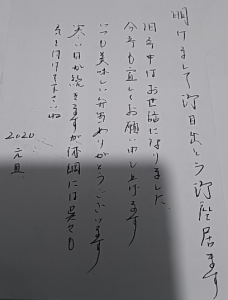 明けまして御目出とう御座居ます
旧年中はお世話になりました
今年も宜しくお願い申し上げます
いつも美味しいお弁当ありがとうございます
寒い日が続きますが体調には呉々も
気を付けて下さいね
2020 元旦